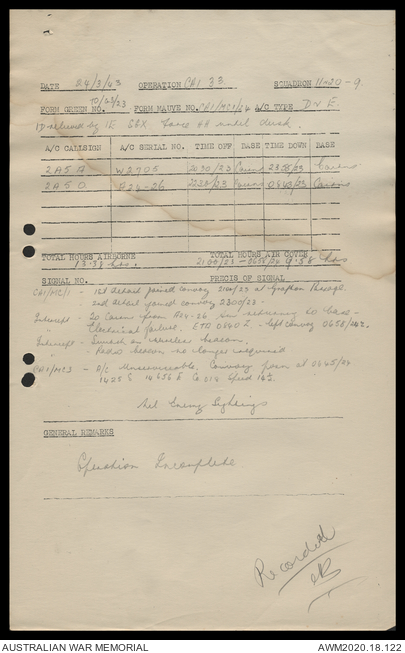 DATE 24/3/43 OPERATION CH1 33 SQUADRON 11-20-9
FORM GREEN NO. FORM MAUVE NO. CH1/MC1/24 A/C TYPE D & E.
A/C CALLSIGN A/C SERIAL NO. TIME OFF BASE TIME DOWN BASE
2A5 A W2705 2030/23 Cairns 2358/23 Cairns
2A5 O A24-26 Cairns Cairns
TOTAL HOURS AIRBORNE TOTAL HOURS AIR COVER
hrs. 9.58 hrs
SIGNAL NO. PRECIS OF SIGNAL
CH1/MC/1 - 1st detail joined convoy 2100/23 at Grafton Passage.
2nd detail joined convoy 2300/23 -
Intercept - 20 Cairns from A24-26 returning to base -
Electrical failure. ETA - left convoy 0658/24z.
Intercept -
" - Radio beacon no longer required
CH1/MC3 - D/C Unserviceable. Convoy posn at 0645/24
1425 S 14536 E Co 314 Speed
Nil Enemy Sightings
GENERAL REMARKS
Operation Incomplete
Recorded
AUSTRALIAN WAR MEMORIAL AWM2020.18.122